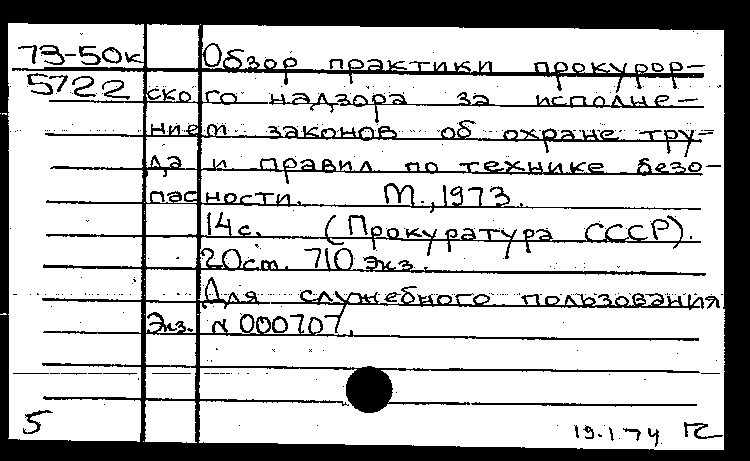 73-50к Обзор практики прокурор-
5722 ского надзора за исполне-
нием законов об охране тру-
да и правил по технике безо-
пасности. М., 1973.
14с. (Прокуратура СССР).
20см. 710 экз.
Для служебного пользования
Экз. N 000707.
5 19.1.74